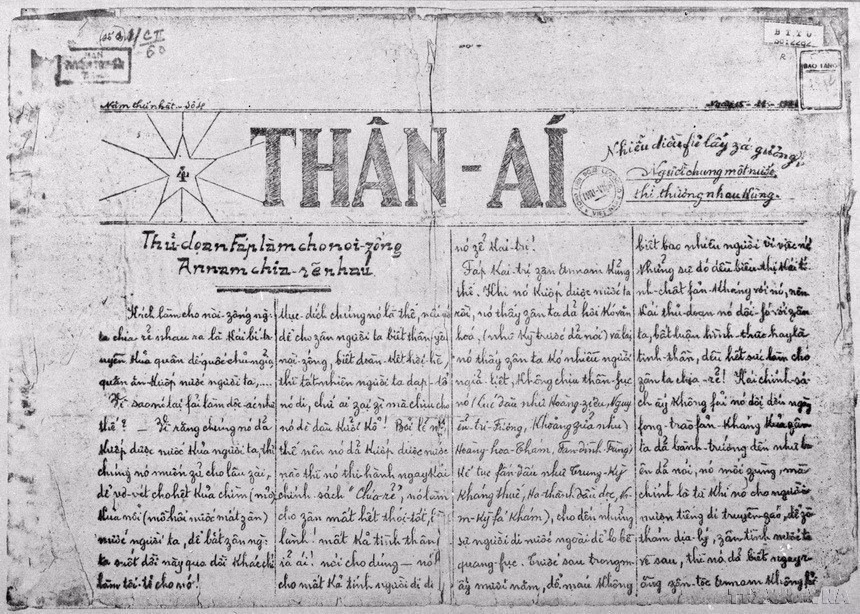 Năm thứ nhất - số 4
4
THÂN-ÁI
Nhiễu điều fủ lấy zá gương,
Người chung một nước,
thì thương nhau kùng.
BẢO TÀNG
Thủ-đoạn Fáp làm cho nòi-zống
Annam chia-rẽ nhau
Kích làm cho nòi-zống ng-
ta chia rẽ nhau ra là kái bí t-
uyền kủa quân đế-quốc chủ nghĩa
quân ăn-kướp nước người ta,....
Vì sao nó lại fải làm độc-ác như
thế? — Vì rằng chúng nó đã
kướp được nước kủa người ta, thì
chúng nó muốn zữ cho lâu zài,
để vơ-vét cho hết kủa chìm (mỏ)
kủa nổi (mồ hôi nước mắt zân)
nước người ta, để bắt zân ng-
ta suốt đời này qua đời khác chỉ
làm tôi-tớ cho nó!
Mục-đích chúng nó là thế, nếu
để cho zân người ta biết thân-yêu
nòi-zống, biết đoàn-kết với
thì tất nhiên người ta đạp-tổ
nó đi, chứ ai zại zì mà chịu cho
nó đè đầu kưỡi kổ! Bởi lẽ
thế nên nó đã kướp được nước
nào thì nó thi-hành ngay kái
chính-sách "Chia-rẽ", nó làm
cho zân mất hết thói-tốt,
lành! mất kả tình thân
ái! nói cho đúng — nó
cho mất kả tính người đi để
nó zễ kai-trị!
Fáp kai-trị zân Annam kũng
thế. Khi nó kướp được nước ta
rồi, nó thấy zân ta đã hơi kó văn
hoá, (như kỳ trước đã nói) và lại
nó thấy zân ta kó nhiều người
nghĩa-liệt, không chịu thần-fục
nó (lúc đầu như Hoàng-Ziệu, Nguy
ễn-tri-Fương, khoảng zữa như
Hoàng-hoa-Thám, Fan-đình-Fùng
kế tục fấn-đấu như Trung-kỳ
kháng thuế, Hà-thành đầu độc,
m-kỳ fá khám), cho đến những
sự người đi nước ngoài để lo bề
quang-fục. Trước sau trong m-
ấy mươi năm, đổ máu không
biết bao nhiêu người vì việc nước
Những sự đó đều biểu-thị kái tí-
nh-chất fản-kháng với nó, nên
kái thủ-đoạn nó đối-fó với zân
ta, bất luận hình-thức hay là
tinh-thần, đều hết sức làm cho
zân ta chia-rẽ! Kái chính-sá-
ch ấy không fải nó đợi đến ngày
fong-trào fản-kháng kủa zân
ta đã bành-trướng đến như
đã nói, nó mới zùng, mà
chính là từ khi nó cho người
mượn tiếng đi truyền-záo, để zò
thám địa-lý, zân tình nước ta
về sau, thì nó đã biết ngay r-
ằng zân-tộc Annam không fải